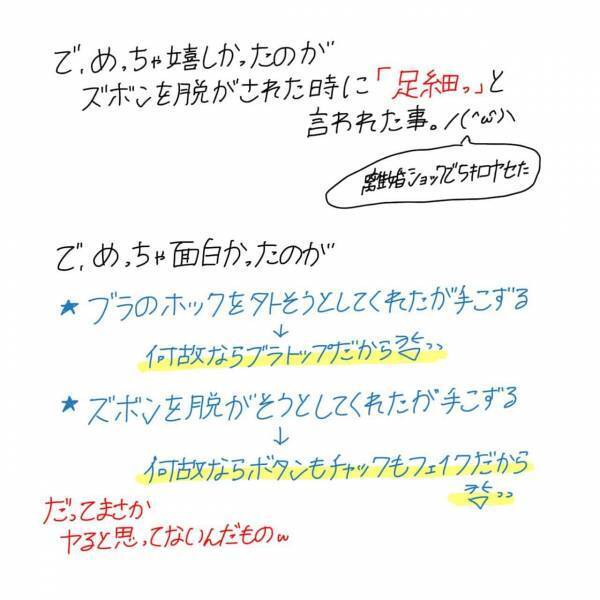 で、めっちゃ嬉しかったのが
ズボンを脱がされた時に「足細っ」と
言われた事。ノ(^ω^)ヽ
離婚ショックで5キロヤセた
で、めっちゃ面白かったのが
★ ブラのホックを外そうとしてくれたが手こずる
↓
何故ならブラトップだから
★ ズボンを脱がそうとしてくれたが手こずる
↓
何故ならボタンもチャックもフェイクだから
だってまさか
ヤると思ってないんだものw